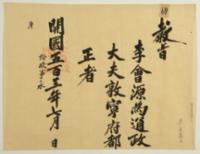 敎旨
李會源爲通政
大夫敦寧府都
正者
開國五百三年六月 日